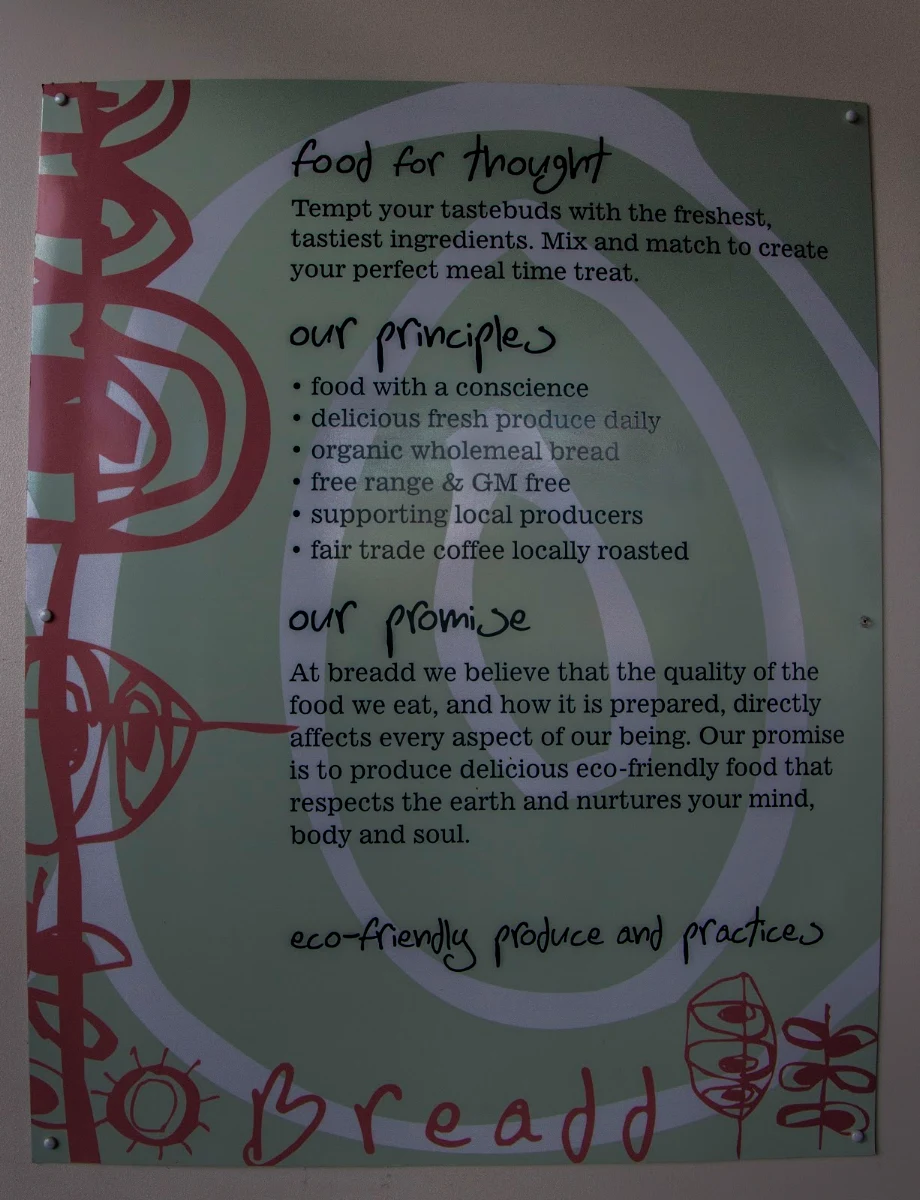 food for thought
Tempt your tastebuds with the freshest,
tastiest ingredients. Mix and match to create
your perfect meal time treat.
our principles
• food with a conscience
• delicious fresh produce daily
• organic wholemeal bread
• free range & GM free
• supporting local producers
• fair trade coffee locally roasted
our promise
At breadd we believe that the quality of the
food we eat, and how it is prepared, directly
affects every aspect of our being. Our promise
is to produce delicious eco-friendly food that
respects the earth and nurtures your mind,
body and soul.
eco-friendly produce and practices
Breadd